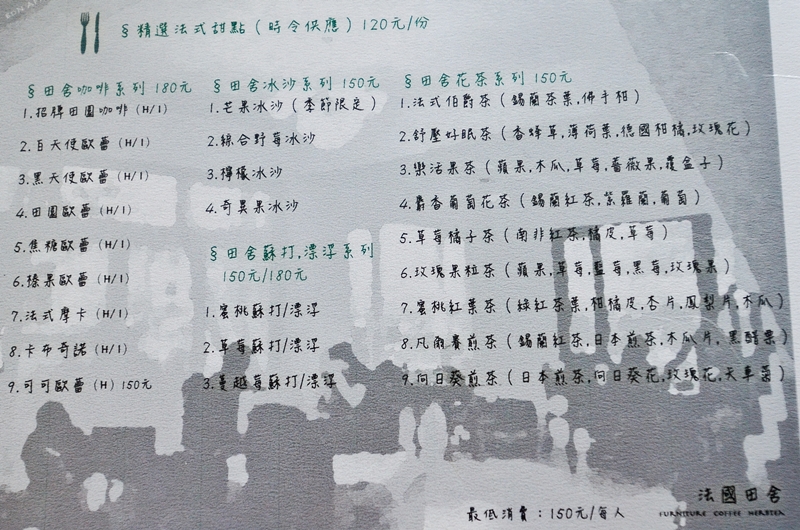 § 精選法式甜點（時令供應）120元/份
§ 田舍咖啡系列 180元
1.招牌田園咖啡 (H/I)
2.百天使歐蕾 (H/I)
3.黑天使歐蕾 (H/I)
4.田園歐蕾 (H/I)
5.焦糖歐蕾 (H/I)
6.榛果歐蕾 (H/I)
7.法式摩卡 (H/I)
8.卡布奇諾 (H/I)
9.可可歐蕾 (H) 150元
§ 田舍冰沙系列 150元
1.芒果冰沙（季節限定）
2.綜合野莓冰沙
3.檸檬冰沙
4.奇異果冰沙
§ 田舍蘇打,漂浮系列
150元/180元
1.蜜桃蘇打/漂浮
2.草莓蘇打/漂浮
3.蔓越莓蘇打/漂浮
§ 田舍花茶系列 150元
1.法式伯爵茶（錫蘭茶葉,佛手柑）
2.舒壓好眠茶（香蜂草,薄荷葉,德國柑橘,玫瑰花）
3.樂活果茶（蘋果,木瓜,草莓,薔薇果,覆盆子）
4.麝香葡萄花茶（錫蘭紅茶,紫羅蘭,葡萄）
5.草莓橘子茶（南非紅茶,橘皮,草莓）
6.玫瑰果粒茶（蘋果,草莓,藍莓,黑莓,玫瑰果）
7.蜜桃紅葉茶（綠紅茶葉,柑橘皮,杏片,鳳梨片,木瓜）
8.凡爾賽煎茶（錫蘭紅茶,日本煎茶,木瓜片,黑醋栗）
9.向日葵煎茶（日本煎茶,向日葵花,玫瑰花,矢車菊）
法國田舍
FURNITURE COFFEE HERBTEA
最低消費：150元/每人